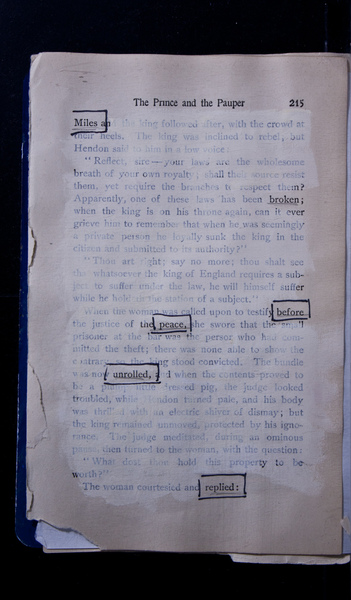 The Prince and the Pauper 215
Miles and the king followed after, with the crowd at
their heels. The king was inclined to rebel; but
Hendon said to him in a low voice:
"Reflect, sire—your laws are the wholesome
breath of your own royalty; shall their source resist
them, yet require the branches to respect them?
Apparently, one of these laws has been broken;
when the king is on his throne again, can it ever
grieve him to remember that when he was seemingly
a private person he loyally sunk the king in the
citizen and submitted to its authority?"
"Thou art right; say no more; thou shalt see
that whatsoever the king of England requires a sub-
ject to suffer under the law, he will himself suffer
while he holdeth the station of a subject."
When the woman was called upon to testify before
the justice of the peace, she swore that the small
prisoner at the bar was the person who had com-
mitted the theft; there was none able to show the
contrary, so the king stood convicted. The bundle
was now unrolled, and when the contents proved to
be a plump little dressed pig, the judge looked
troubled, while Hendon turned pale, and his body
was thrilled with an electric shiver of dismay; but
the king remained unmoved, protected by his igno-
rance. The judge meditated, during an ominous
pause, then turned to the woman, with the question:
"What dost thou hold this property to be
worth?"
The woman courtesied and replied: